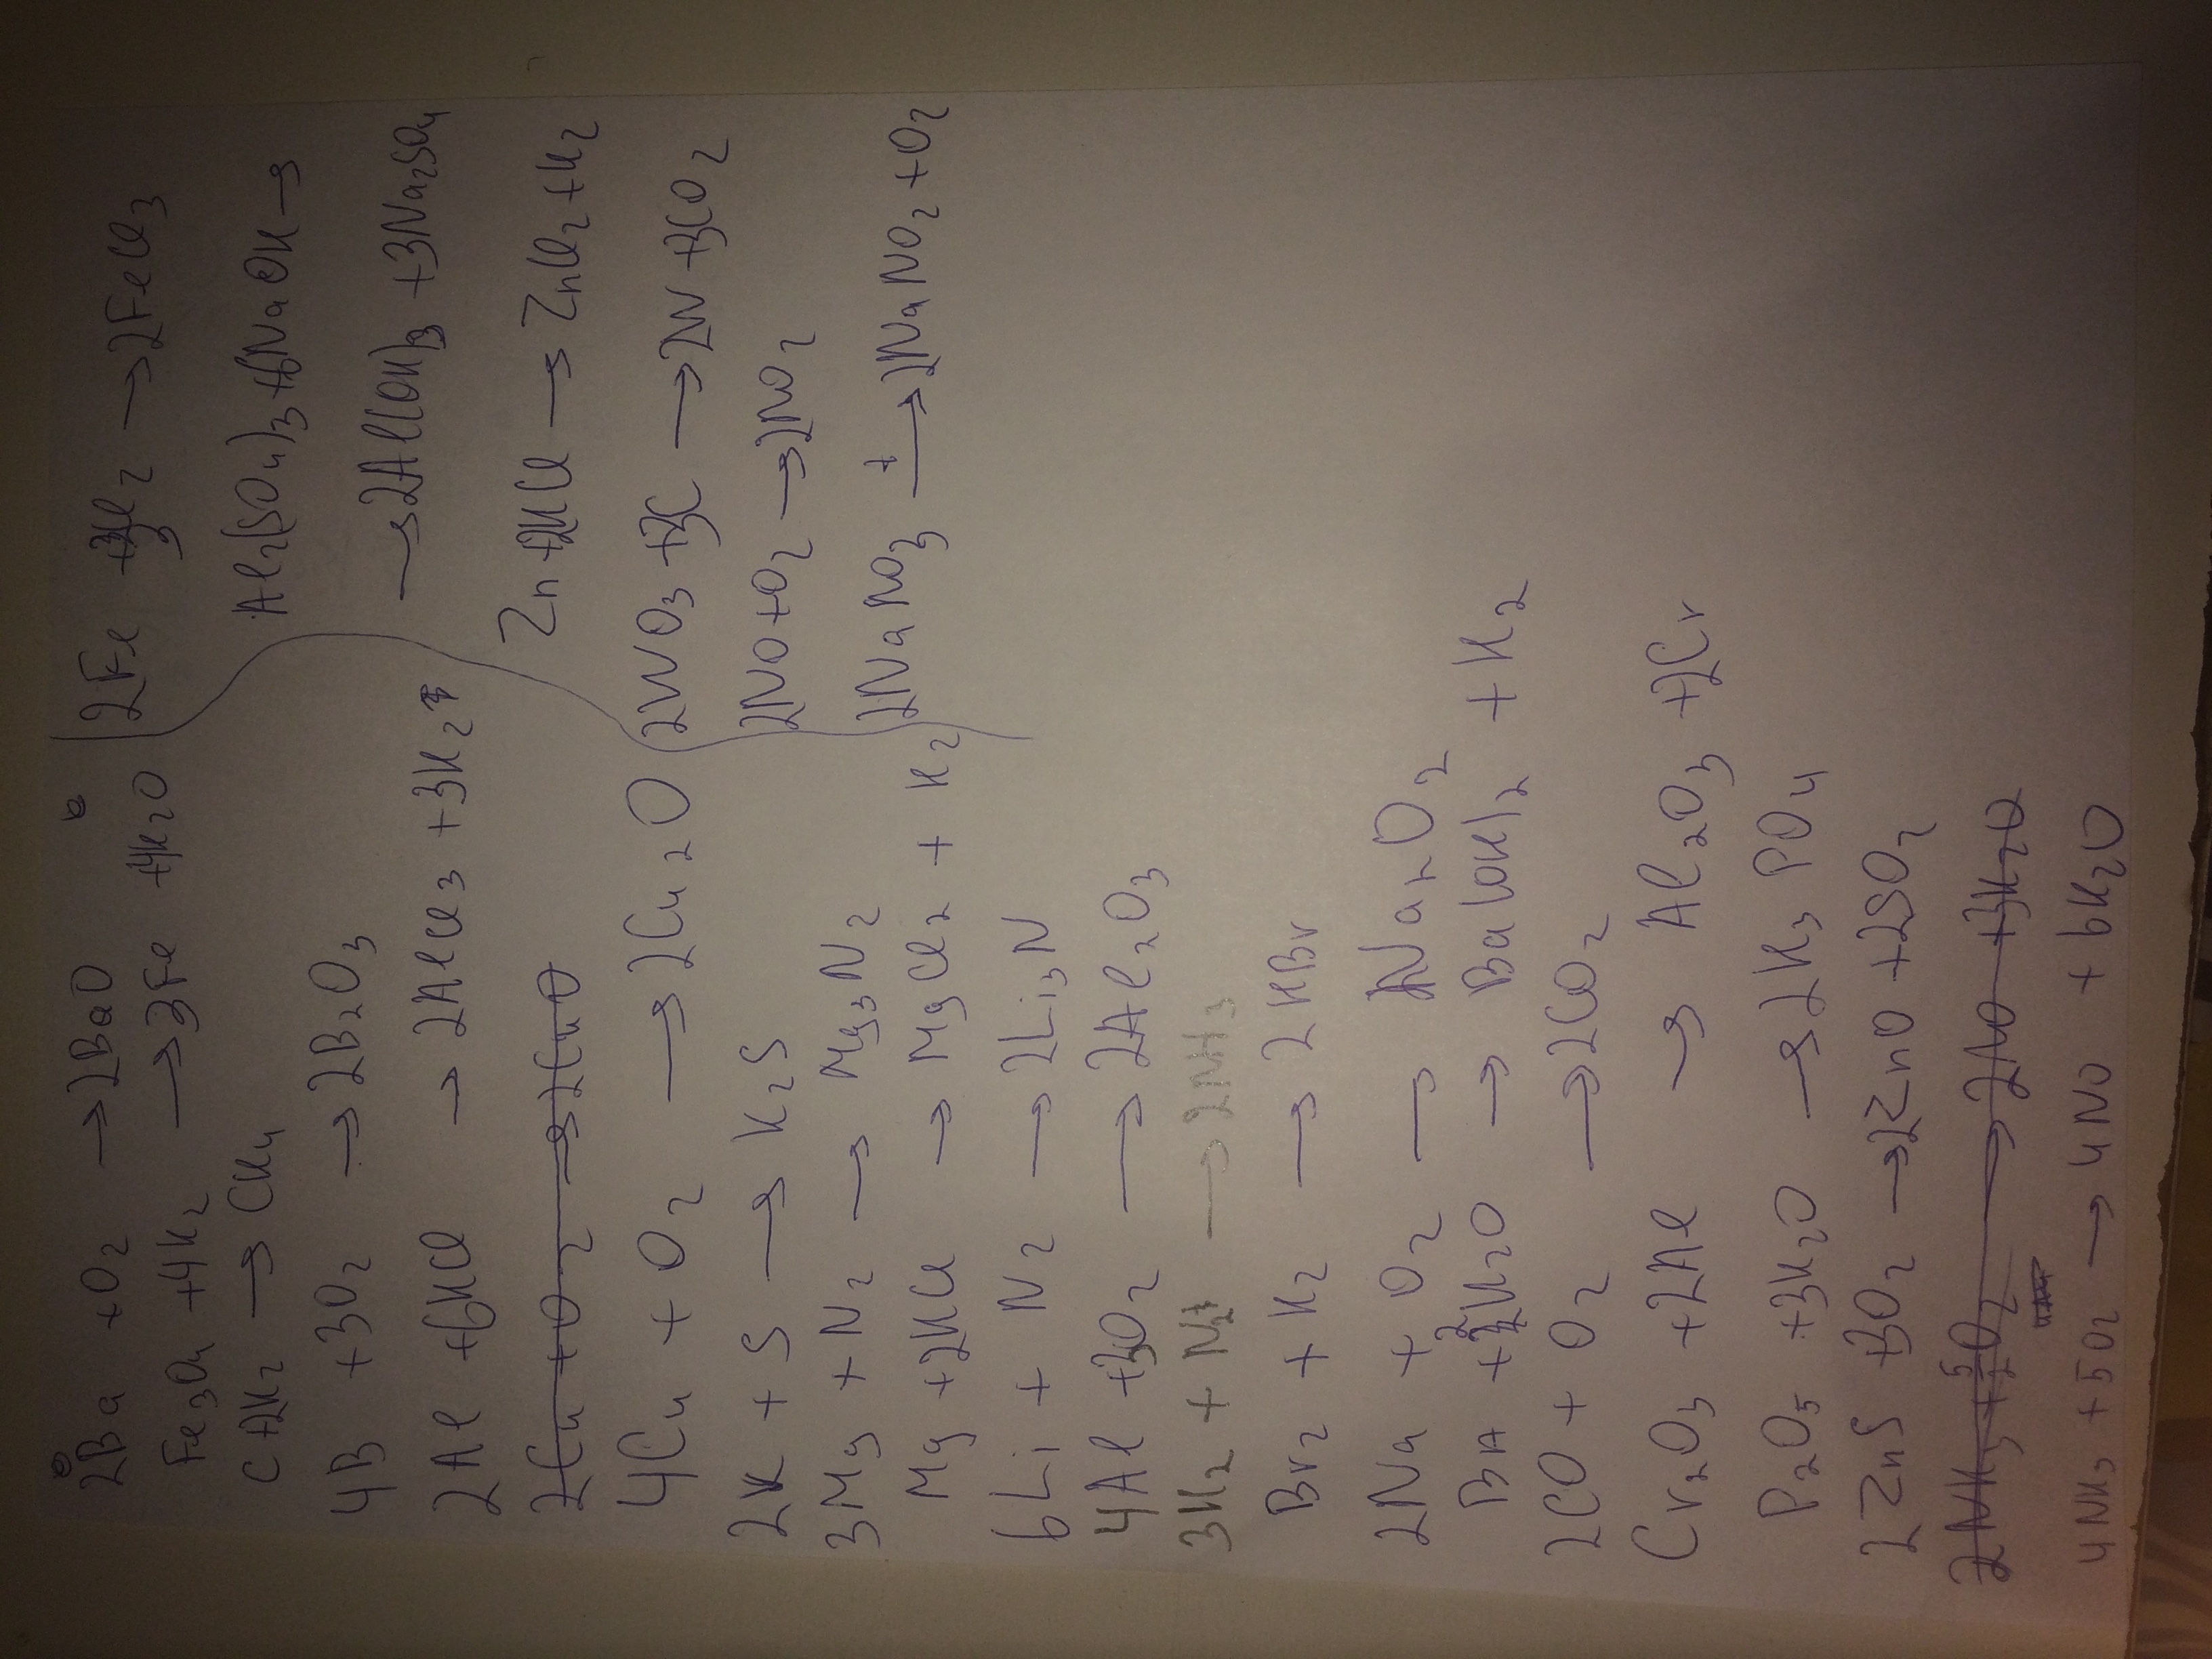 2Ba + O2 → 2BaO
Fe3O4 + 4H2 → 3Fe + 4H2O
C + 2H2 → CH4
4B + 3O2 → 2B2O3
2Al + 6HCl → 2AlCl3 + 3H2↑
2Cu + O2 → 2CuO
4Cu + O2 → 2Cu2O
2K + S → K2S
3Mg + N2 → Mg3N2
Mg + 2HCl → MgCl2 + H2
6Li + N2 → 2Li3N
4Al + 3O2 → 2Al2O3
3H2 + N2 → 2NH3
Br2 + H2 → 2HBr
2Na + O2 → Na2O2
Ba + 2H2O → Ba(OH)2 + H2
2CO + O2 → 2CO2
Cr2O3 + 2Al → Al2O3 + 2Cr
P2O5 + 3H2O → 2H3PO4
2ZnS + 3O2 → 2ZnO + 2SO2
2NH3 + 5O2 → 2NO + 3H2O
4NH3 + 5O2 → 4NO + 6H2O
2Fe + 3Cl2 → 2FeCl3
Al2(SO4)3 + 6NaOH →
→ 2Al(OH)3 + 3Na2SO4
Zn + 2HCl → ZnCl2 + H2
2WO3 + 3C → 2W + 3CO2
2NO + O2 → 2NO2
2NaNO3 t→ 2NaNO2 + O2